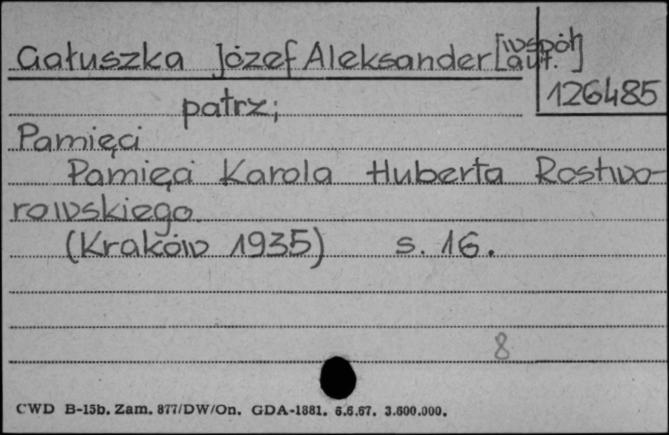 Gałuszka Józef Aleksander [współ
aut.]
126485
patrz;
Pamięci
Pamięci Karola Huberta Rostwo-
rowskiego.
(Kraków 1935) s. 16.
8
CWD B-15b. Zam. 877/DW/On. GDA-1881. 6.6.67. 3.600.000.